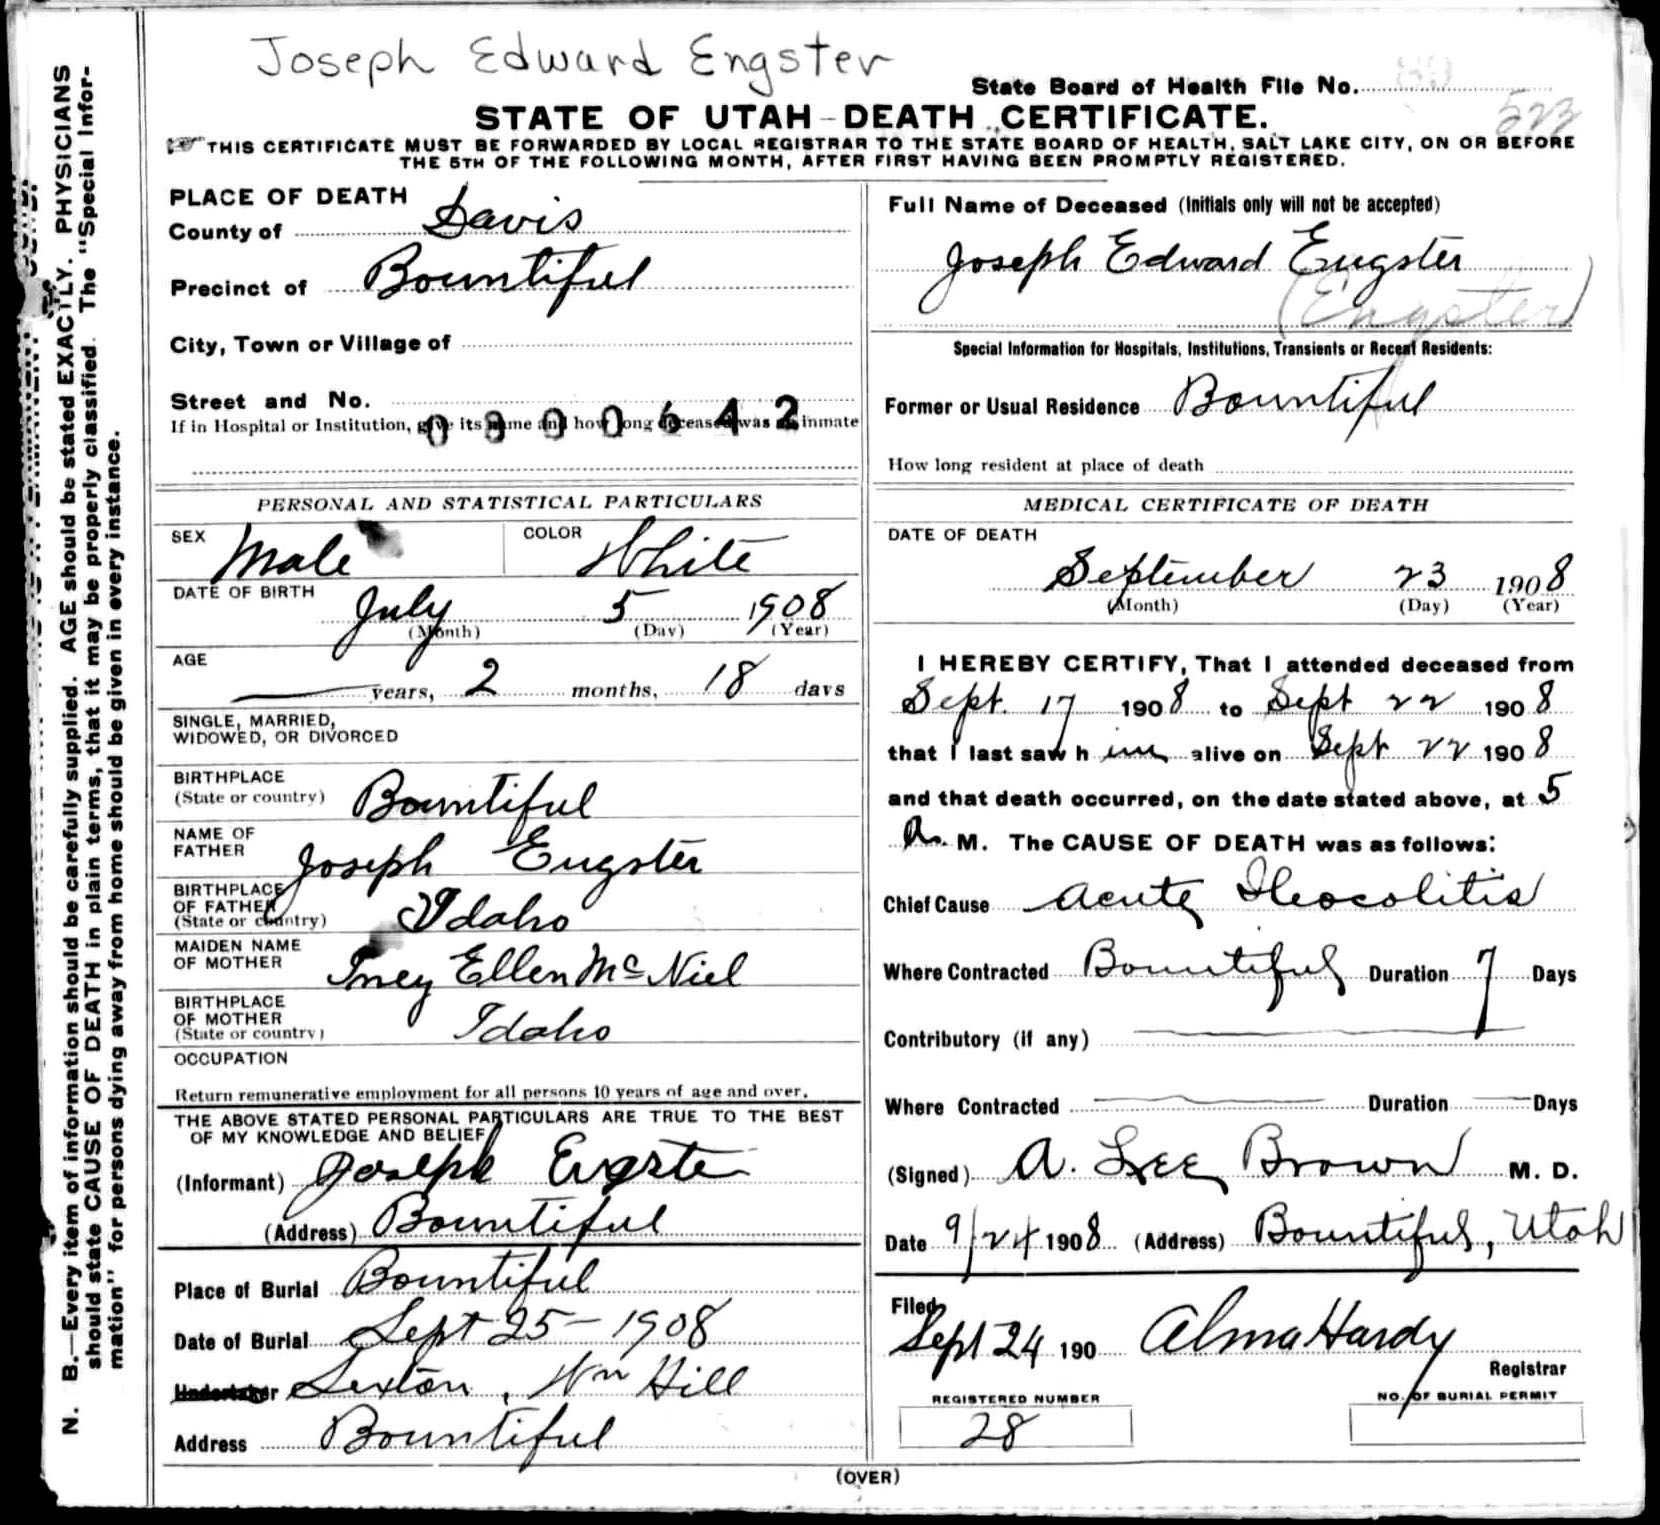 Joseph Edward Engster
State Board of Health File No. 89
522
STATE OF UTAH-DEATH CERTIFICATE.
THIS CERTIFICATE MUST BE FORWARDED BY LOCAL REGISTRAR TO THE STATE BOARD OF HEALTH, SALT LAKE CITY, ON OR BEFORE
THE 5TH OF THE FOLLOWING MONTH, AFTER FIRST HAVING BEEN PROMPTLY REGISTERED.
PLACE OF DEATH
County of Davis
Precinct of Bountiful
City, Town or Village of
Street and No.
If in Hospital or Institution, give its name and how long deceased was an inmate
0300642
PERSONAL AND STATISTICAL PARTICULARS
SEX Male COLOR White
DATE OF BIRTH
July 5 1908
(Month) (Day) (Year)
AGE
years, 2 months, 18 days
SINGLE, MARRIED,
WIDOWED, OR DIVORCED
BIRTHPLACE
(State or country) Bountiful
NAME OF
FATHER Joseph Engster
BIRTHPLACE
OF FATHER
(State or country) Idaho
MAIDEN NAME
OF MOTHER Iney Ellen McNiel
BIRTHPLACE
OF MOTHER
(State or country) Idaho
OCCUPATION
Return remunerative employment for all persons 10 years of age and over.
THE ABOVE STATED PERSONAL PARTICULARS ARE TRUE TO THE BEST
OF MY KNOWLEDGE AND BELIEF
(Informant) Joseph Engster
(Address) Bountiful
Place of Burial Bountiful
Date of Burial Sept 25-1908
Undertaker Sexton, Wm Hill
Address Bountiful
Full Name of Deceased (Initials only will not be accepted)
Joseph Edward Engster
(Engster)
Special Information for Hospitals, Institutions, Transients or Recent Residents:
Former or Usual Residence Bountiful
How long resident at place of death
MEDICAL CERTIFICATE OF DEATH
DATE OF DEATH
September 23 1908
(Month) (Day) (Year)
I HEREBY CERTIFY, That I attended deceased from
Sept. 17 1908 to Sept 22 1908
that I last saw him alive on Sept 22 1908
and that death occurred, on the date stated above, at 5
A. M. The CAUSE OF DEATH was as follows:
Chief Cause Acute Ileocolitis
Where Contracted Bountiful Duration 7 Days
Contributory (if any)
Where Contracted Duration Days
(Signed) A. Lee Brown M. D.
Date 9/24 1908 (Address) Bountiful, Utah
Filed
Sept 24 190 Alma Hardy
Registrar
REGISTERED NUMBER NO. OF BURIAL PERMIT
28
(OVER)
N. B.—Every item of information should be carefully supplied. AGE should be stated EXACTLY. PHYSICIANS
should state CAUSE OF DEATH in plain terms, that it may be properly classified. The "Special Infor-
mation" for persons dying away from home should be given in every instance.